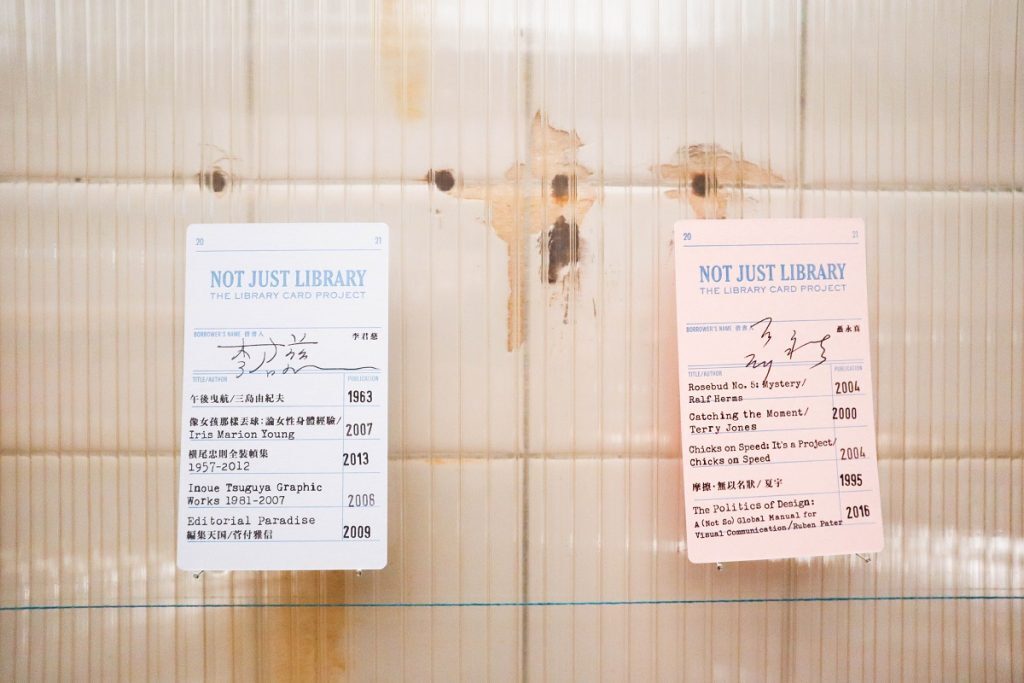 20 21
NOT JUST LIBRARY
THE LIBRARY CARD PROJECT
BORROWER'S NAME 借書人
李君慈
TITLE/AUTHOR PUBLICATION
午後曳航/三島由紀夫 1963
像女孩那樣丟球:論女性身體經驗/
Iris Marion Young 2007
橫尾忠則全裝幀集
1957-2012 2013
Inoue Tsuguya Graphic
Works 1981-2007 2008
Editorial Paradise
編集天国/菅付雅信 2009
20 21
NOT JUST LIBRARY
THE LIBRARY CARD PROJECT
BORROWER'S NAME 借書人
聶永真
TITLE/AUTHOR PUBLICATION
Rosebud No. 5: Mystery/
Ralf Herms 2004
Catching the Moment/
Terry Jones 2000
Chicks on Speed: It's a Project/
Chicks on Speed 2004
摩擦·無以名狀/夏宇 1995
The Politics of Design:
A (Not So) Global Manual for
Visual Communication/Ruben Pater 2016